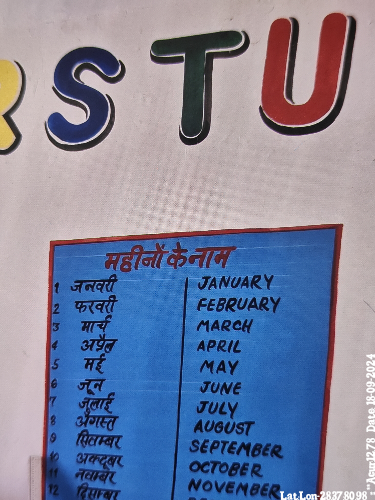 S T U
महीनों के नाम
1 जनवरी JANUARY
2 फरवरी FEBRUARY
3 मार्च MARCH
4 अप्रैल APRIL
5 मई MAY
6 जून JUNE
7 जुलाई JULY
8 अगस्त AUGUST
9 सितम्बर SEPTEMBER
10 अक्टूबर OCTOBER
11 नवम्बर NOVEMBER
12 दिसम्बर
Lat.Lon-28378098
Date 18-09-2024